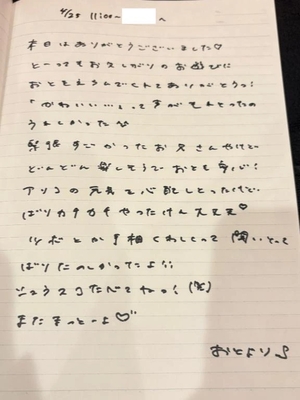 4/25 11:00~ へ
本日はありがとうございました♡
とーってもお久しぶりのお遊びに
おとをえらんでくれてありがとうっ!
「かわいい…」って すが
うれしかった
緊張すごかったお兄さんやけど
どんどん 楽しそうで おとも 安心!
アソコの元気で心配しとったけど
ばりカチカチやったけん 大丈夫♡
ツボとか手相くわしくって 聞いとって
ばりたのしかったよ!!
たべてねっ! (笑)
またまっとーよ♡
おとより♪